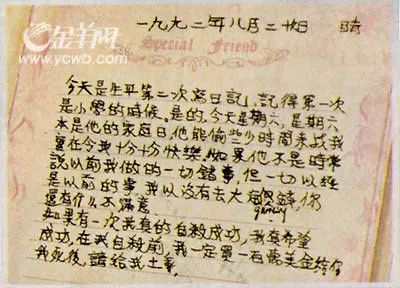 金羊网
www.ycwb.com
一九九二年八月二十日 晴
Special Friend
今天是生平第二次寫日記,記得第一次
是小學的時候。是的,今天星期六,星期六
本是他的家庭日,他能偷些少時間來找我
實在令我十分十分快樂。如果他不是時常
說以前我做的一切錯事,但一切以經
是以前的事,我以沒有去大
gambling
你
還有什么不滿意,
如果有一次我真的自殺成功,我真希望
成功,在我自殺前,我一定買一百萬美金給你
我死後,請給我土葬,